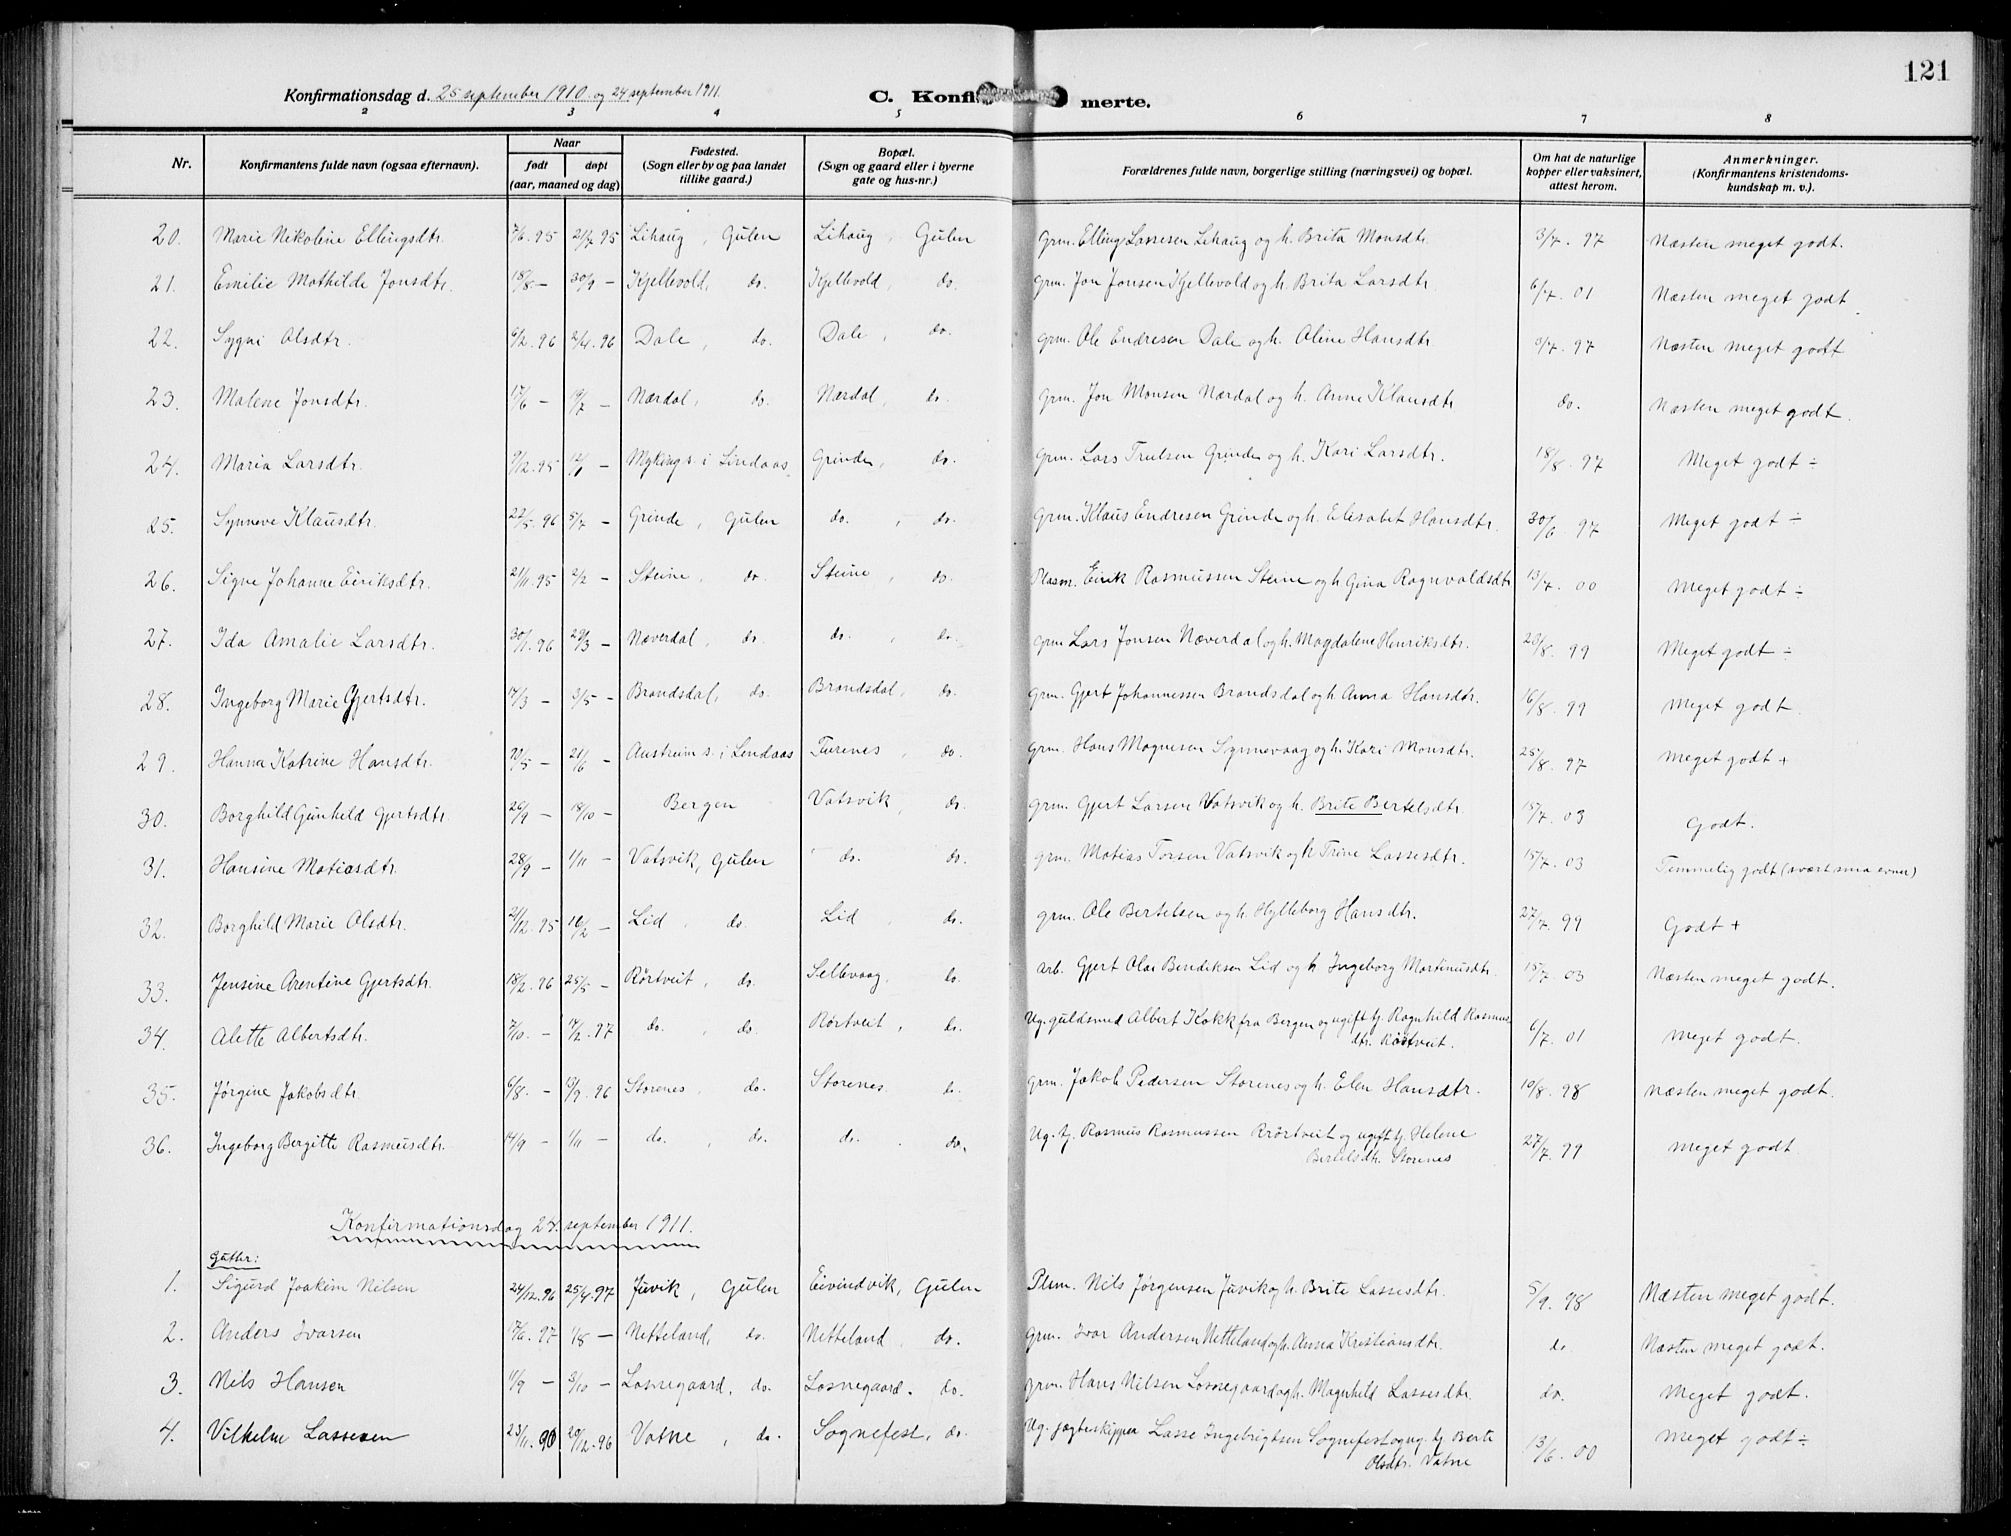 121
Konfirmationsdag d. 25 september 1910 og 24 september 1911.
C. Konfirmerte.
2 3 4 5 6 7 8
Nr. Konfirmantens fulde navn (ogsaa efternavn). Naar født døpt (aar, maaned og dag) Fødested. (Sogn eller by og paa landet tillike gaard.) Bopæl. (Sogn og gaard eller i byerne gate og hus-nr.) Forældrenes fulde navn, borgerlige stilling (næringsvei) og bopæl. Om hat de naturlige kopper eller vaksinert, attest herom. Anmerkninger. (Konfirmantens kristendoms-kundskap m. v.).
20. Marie Nikoline Ellingsdtr. 7/6 95 21/7 95 Lihaug, Gulen Lihaug, Gulen Grm. Elling Lassesen Lihaug og h. Brita Monsdtr. 3/7. 97 Næsten meget godt.
21. Emilie Mathilde Jonsdtr. 18/8 – 30/9 – Kjellevold, do. Kjellevold, do. Grm. Jon Jonsen Kjellevold og h. Brita Larsdtr. 6/7. 01 Næsten meget godt.
22. Sygni Olsdtr. 6/2. 96 2/4. 96 Dale, do. Dale, do. Grm. Ole Endresen Dale og h. Oline Hansdtr. 97 Næsten meget godt
23. Malene Jonsdtr. 17/6 – 19/7 – Nærdal, do. Nærdal, do. Grm. Jon Monsen Nærdal og h. Anne Klausdtr do. Næsten meget godt.
24. Maria Larsdtr. 9/12. 95 12/1 – Myking s. i Lindaas. Grinde, do. Grm. Lars Trulsen Grinde og h. Kari Larsdtr. 18/8. 97 Meget godt ÷
25. Synneve Klausdtr. 22/5. 96 5/7 – Grinde, Gulen do. , do. Grm. Klaus Endresen Grinde og h. Elisabet Hansdtr. 30/6 97 Meget godt ÷
26. Signe Johanne Eiriksdtr. 21/11. 95 2/2 – Steine, do. Steine, do. Plasm. Eirik Rasmussen Steine og h. Gina Ragnvaldsdtr 13/7. 00 Meget godt ÷
27. Ida Amalie Larsdtr. 30/1. 96 29/3 – Næverdal, do. do. , do. Grm. Lars Jonsen Næverdal og h. Magdalene Henriksdtr. 23/8. 99 Meget godt ÷
28. Ingeborg Marie Gjertsdtr. 17/3 – 3/5 – Brandsdal, do. Brandsdal, do. Grm. Gjert Johannessen Brandsdal og h. Anna Hansdtr. 16/8. 99 Meget godt.
29. Hanna Katrine Hansdtr. 21/5 – 21/6 – Austreim s. i Lindaas Furenes, do. Grm. Hans Magnesen Synnevaag og h. Kari Monsdtr. 25/8. 97 Meget godt +
30. Borghild Gunhild Gjertsdtr. 26/9 – 18/10 – Bergen Vatsvik, do. Grm. Gjert Larsen Vatsvik og h. Brite Bertelsdtr. 15/7. 03 Godt.
31. Hansine Matiasdtr. 28/9 – 1/11 – Vatsvik, Gulen do. do. Grm. Matias Torsen Vatsvik og h Trine Lassesdtr. 15/7. 03 Temmelig godt (svært sma evner)
32. Borghild Marie Olsdtr. 21/12. 95 16/2 – Lid, do. Lid, do. Grm. Ole Bertelsen og h. Hylleborg Hansdtr. 27/7. 99 Godt +
33. Jensine Arentine Gjertsdtr. 18/2. 96 25/5 – Rørtveit, do. Sellevaag, do. Arb. Gjert Olai Bendiksen Lid og h. Ingeborg Martinusdtr. 15/7. 03 Næsten meget godt.
34. Alette Albertsdtr. 7/10. – 17/2. 97 do. , do. Rørtveit, do. Ug. guldsmed Albert Kokk fra Bergen og ugift tj. Ragnhild Rasmus-
dtr. Rørtveit. 6/7. 01 Meget godt.
35. Jørgine Jakobsdtr. 6/8. – 13/9. 96 Storenes, do. Storenes do. Grm. Jakob Pedersen Storenes og h. Elen Hansdtr. 10/8. 98 Næsten meget godt.
36. Ingeborg Bergitte Rasmusdtr. 14/9 – 1/11 – do. , do. do. , do. Ug. tj. Rasmus Rasmussen Rørtveit og ugift tj. Helene
Bertelsdtr. Storenes 27/7. 99 Meget godt.
Konfirmationsdag 24. september 1911.
Gutter:
1. Sigurd Joakim Nilsen 24/12. 96 25/4. 97 Juvik, Gulen Eivindvik, Gulen Plsm. Nils Jørgensen Juvik og h. Brite Lassesdtr. 5/9. 98 Næsten meget godt.
2. Anders Ivarsen 17/6. 97 1/8 – Netteland, do. Netteland, do. Grm. Ivar Andersen Netteland og h. Anna Kristiansdtr. do. Næsten meget godt.
3. Nils Hansen 11/9 – 3/10 – Losnegaard, do. Losnegaard. do. Grm. Hans Nilsen Losnegaard og h. Magnhild Lassesdtr. do. Meget godt.
4. Vilhelm Lassesen 23/11. 96 20/12. 96 Vatne, do. Sognefest, do. Ug. jagteskipper Lasse Ingebrigtsen Sognefest og ug. tj. Berte
Olsdtr. Vatne 13/6. 00 Meget godt ÷